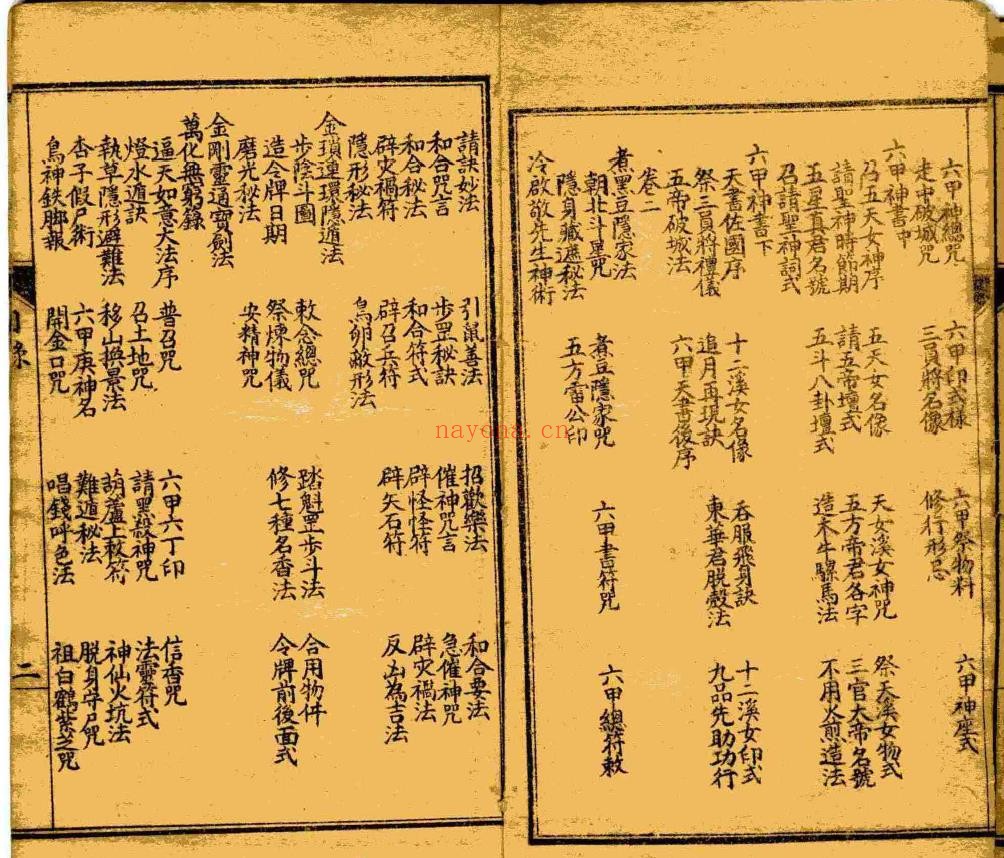 六甲神總咒 六甲印式樣 六甲祭物料 六甲神座式
走中破城咒 三員將名像 修行形忌
六甲神書中
召五天女神序 五天女名像 天女溪女神咒 祭天溪女物式
請聖神時節期 請五帝壇式 五方帝君各字 三官大帝名號
五星真君名號 五斗八卦壇式 造木牛騾馬法 不用火煎造法
召請聖神詞式
六甲神書下
天書佐國序 十二溪女名像 吞服飛身訣 十二溪女印式
祭三員將禮儀 追月再現訣 東華君脫殼法 九品先助功行
五帝破城法 六甲天書後序
卷二
煮黑豆隱家法
朝北斗星咒 煮豆隱家咒 六甲書符咒 六甲總符敕
隱身藏遮秘法 五方雷公印
冷啟敬先生神術
請訣妙法 引鼠善法 招歡樂法 和合要法
和合咒言 步罡秘訣 催神咒言 急催神咒
和合秘法 和合符式 辟怪怪符 辟灾禍法
辟灾禍符 辟召兵符 辟矢石符 反凶為吉法
隱形秘法 鳥卵敵形法
金瑣連環隱遁法
步陰斗圖 敕念總咒 踏魁罡步斗法 合用物件
造令牌日期 祭煉物儀 修七種名香法 令牌前後面式
磨光秘法 安精神咒
金剛靈通寶劍法
萬化無窮錄
逼天如意大法序 普召咒 六甲六丁印 信香咒
燈水遁訣 召土地咒 請黑殺神咒 法靈符式
執草隱形避難法 移山換景法 葫蘆上敕符 神仙火坑法
杏子假尸術 六甲庚神名 難遁秘法 脫身守尸咒
鳥神鉄腳報 開金口咒 唱錢呼色法 祖白鶴紫芝咒
二
nayona.cn